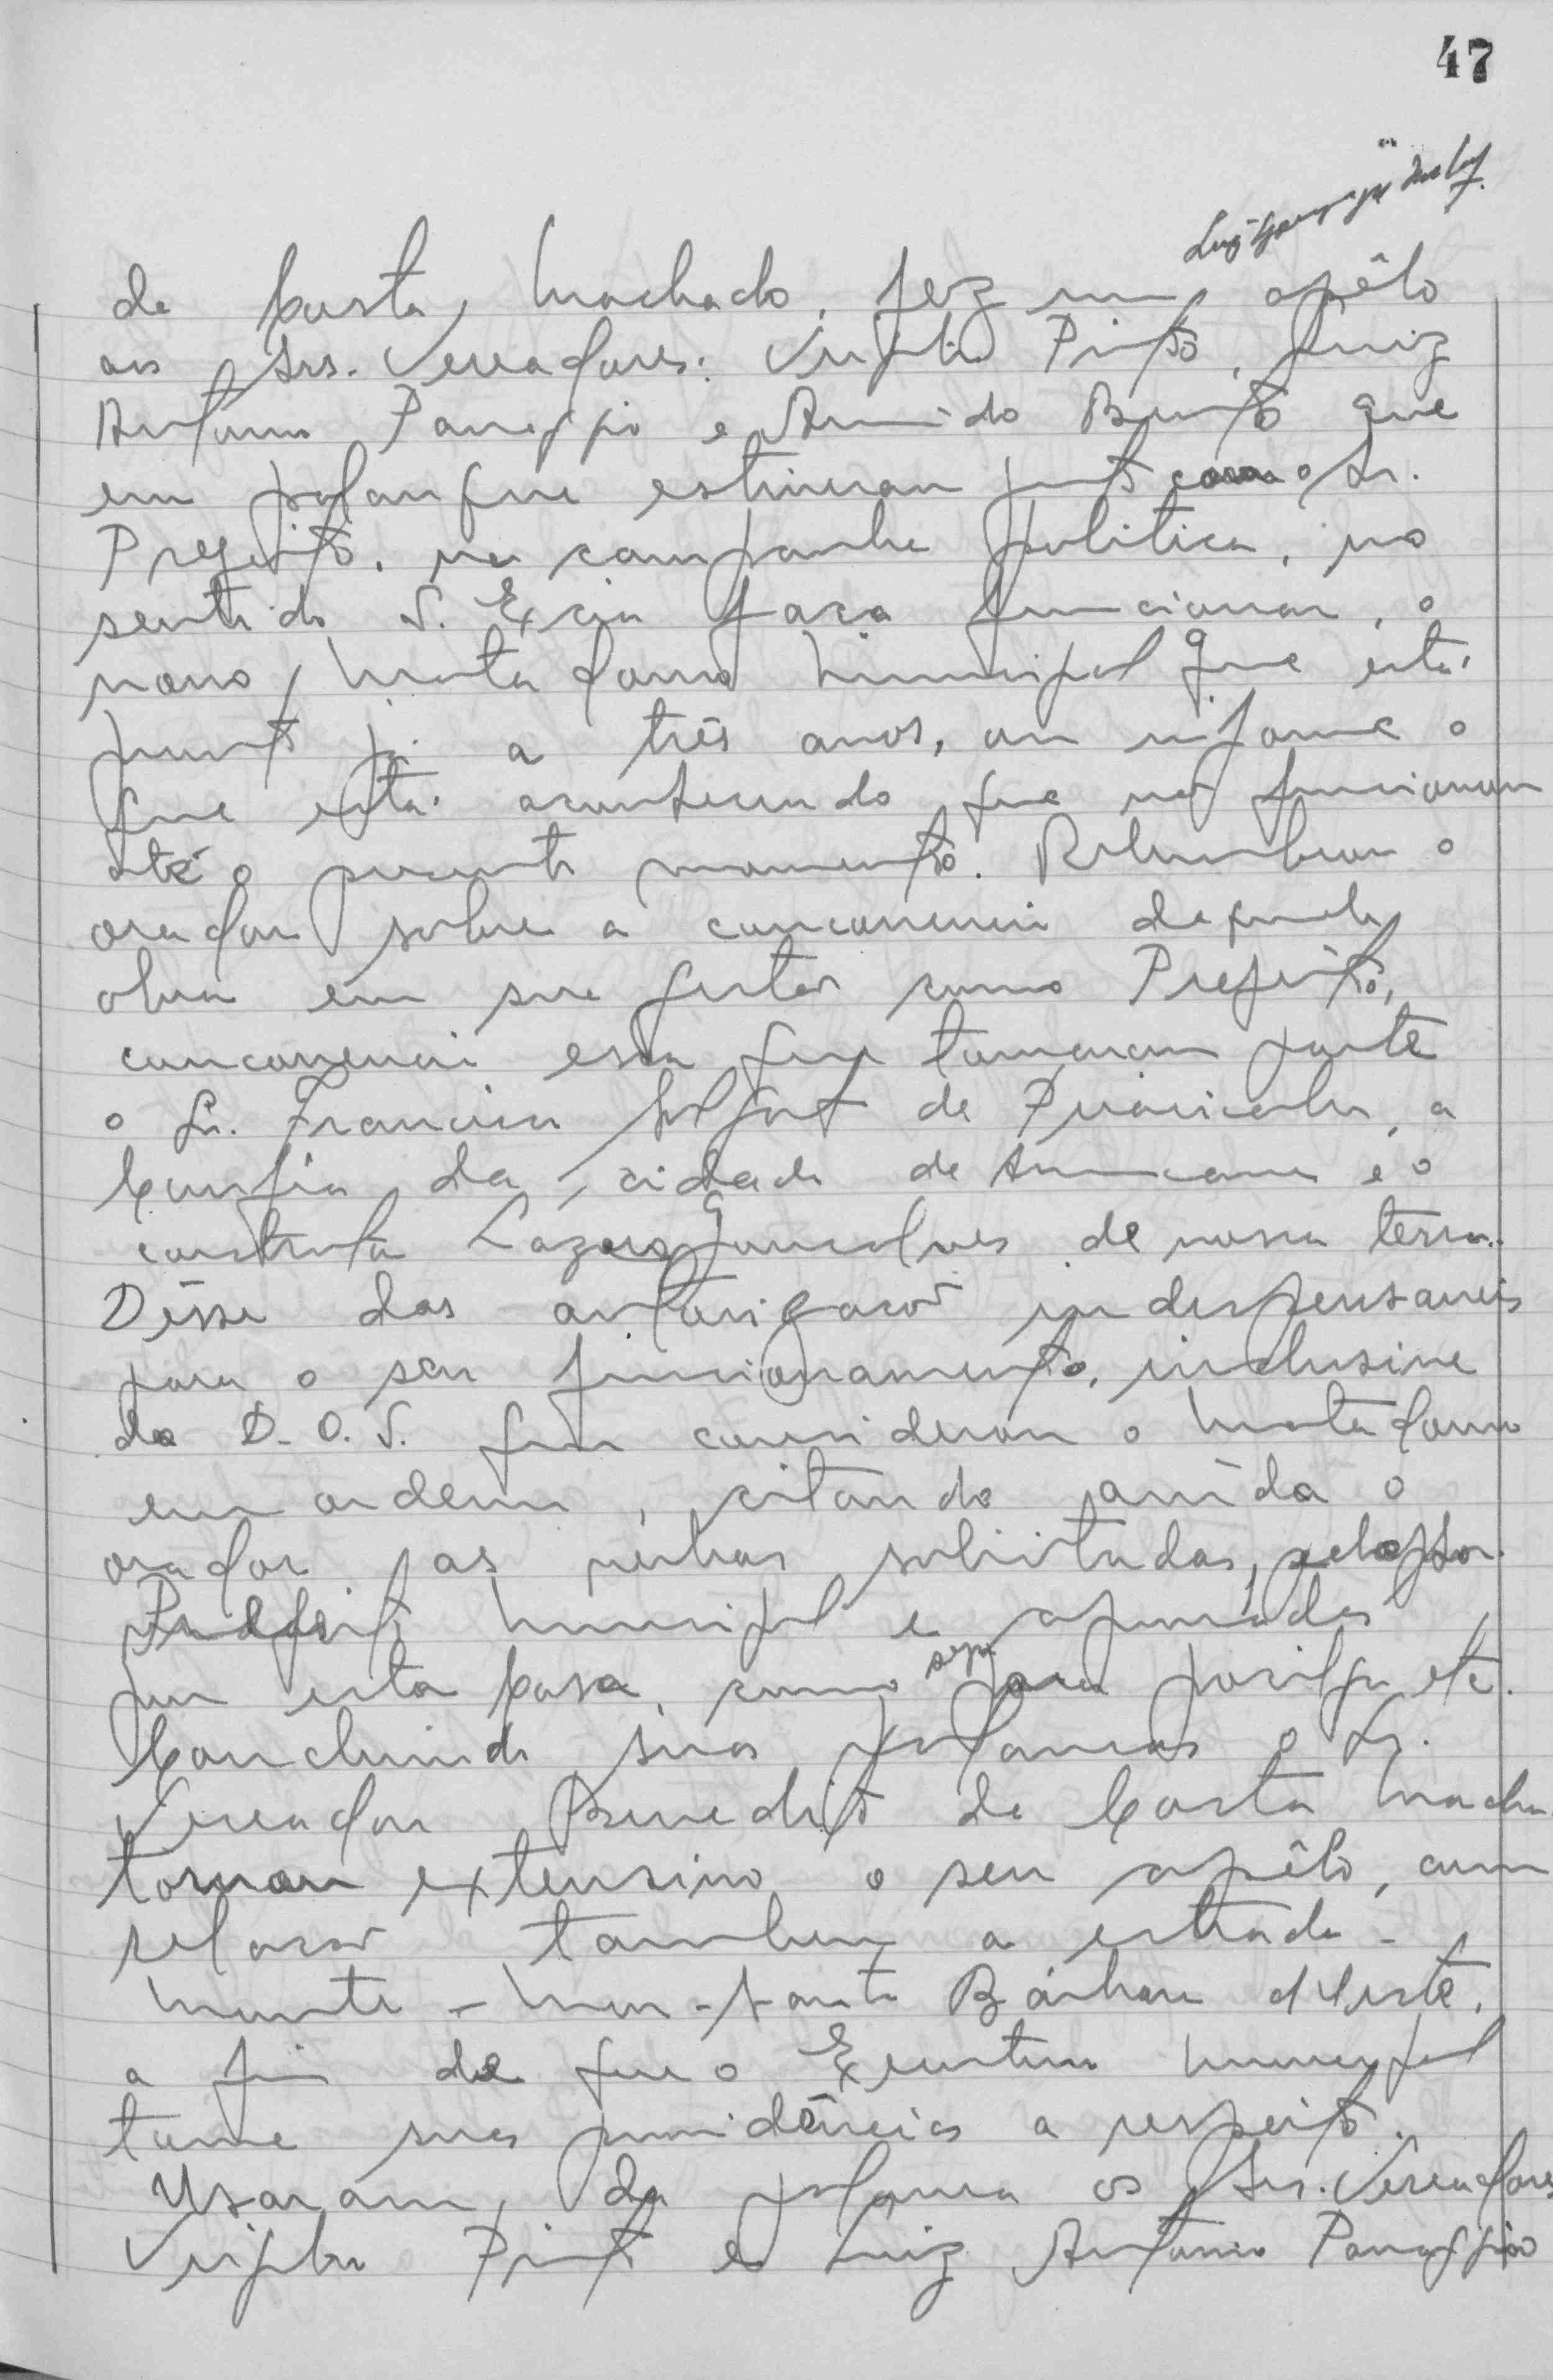 47
de Costa Machado, fez um apêlo
aos Srs. Vereadores: Virgilio Pinto, Luiz
Antonio Panaggio e Armido Bento que
em palanque estiveram junto com o Sr.
Prefeito, na campanha politica, no
sentido S. Excia faça funcionar, o
novo Matadouro Municipal que está
pronto já a três anos, ou informe o
que está acontecendo que não funcionou
até o presente momento. Relembrou o
orador sobre a concorrencia daquela
obra em sua gestão como Prefeito,
concorrencia essa que tomaram parte
o Sr. Francisco de Piracicaba, a
da cidade de Americana e o
construtor Lazaro Gonsalves de nossa terra.
Disse das autorização indispensaveis
para o seu funcionamento, inclusive
do D.O.S. que considerou o Matadouro
em ordem, citando ainda o
orador as verbas solicitadas pelo Sr.
Prefeito Municipal e aprovadas
por esta Casa, como seja para etc.
Concluindo suas palavras o Sr.
Vereador Benedito de Costa Macha
tornou extensivo o seu apêlo, com
relação tambem a estrada -
Monte - Mor - Santa Bárbara d'Oeste,
a fim de que o Executivo Municipal
tome suas providências a respeito.
Usaram, da palavra os Srs. Vereadores
Virgilio Pinto e Luiz Antonio Panaggio